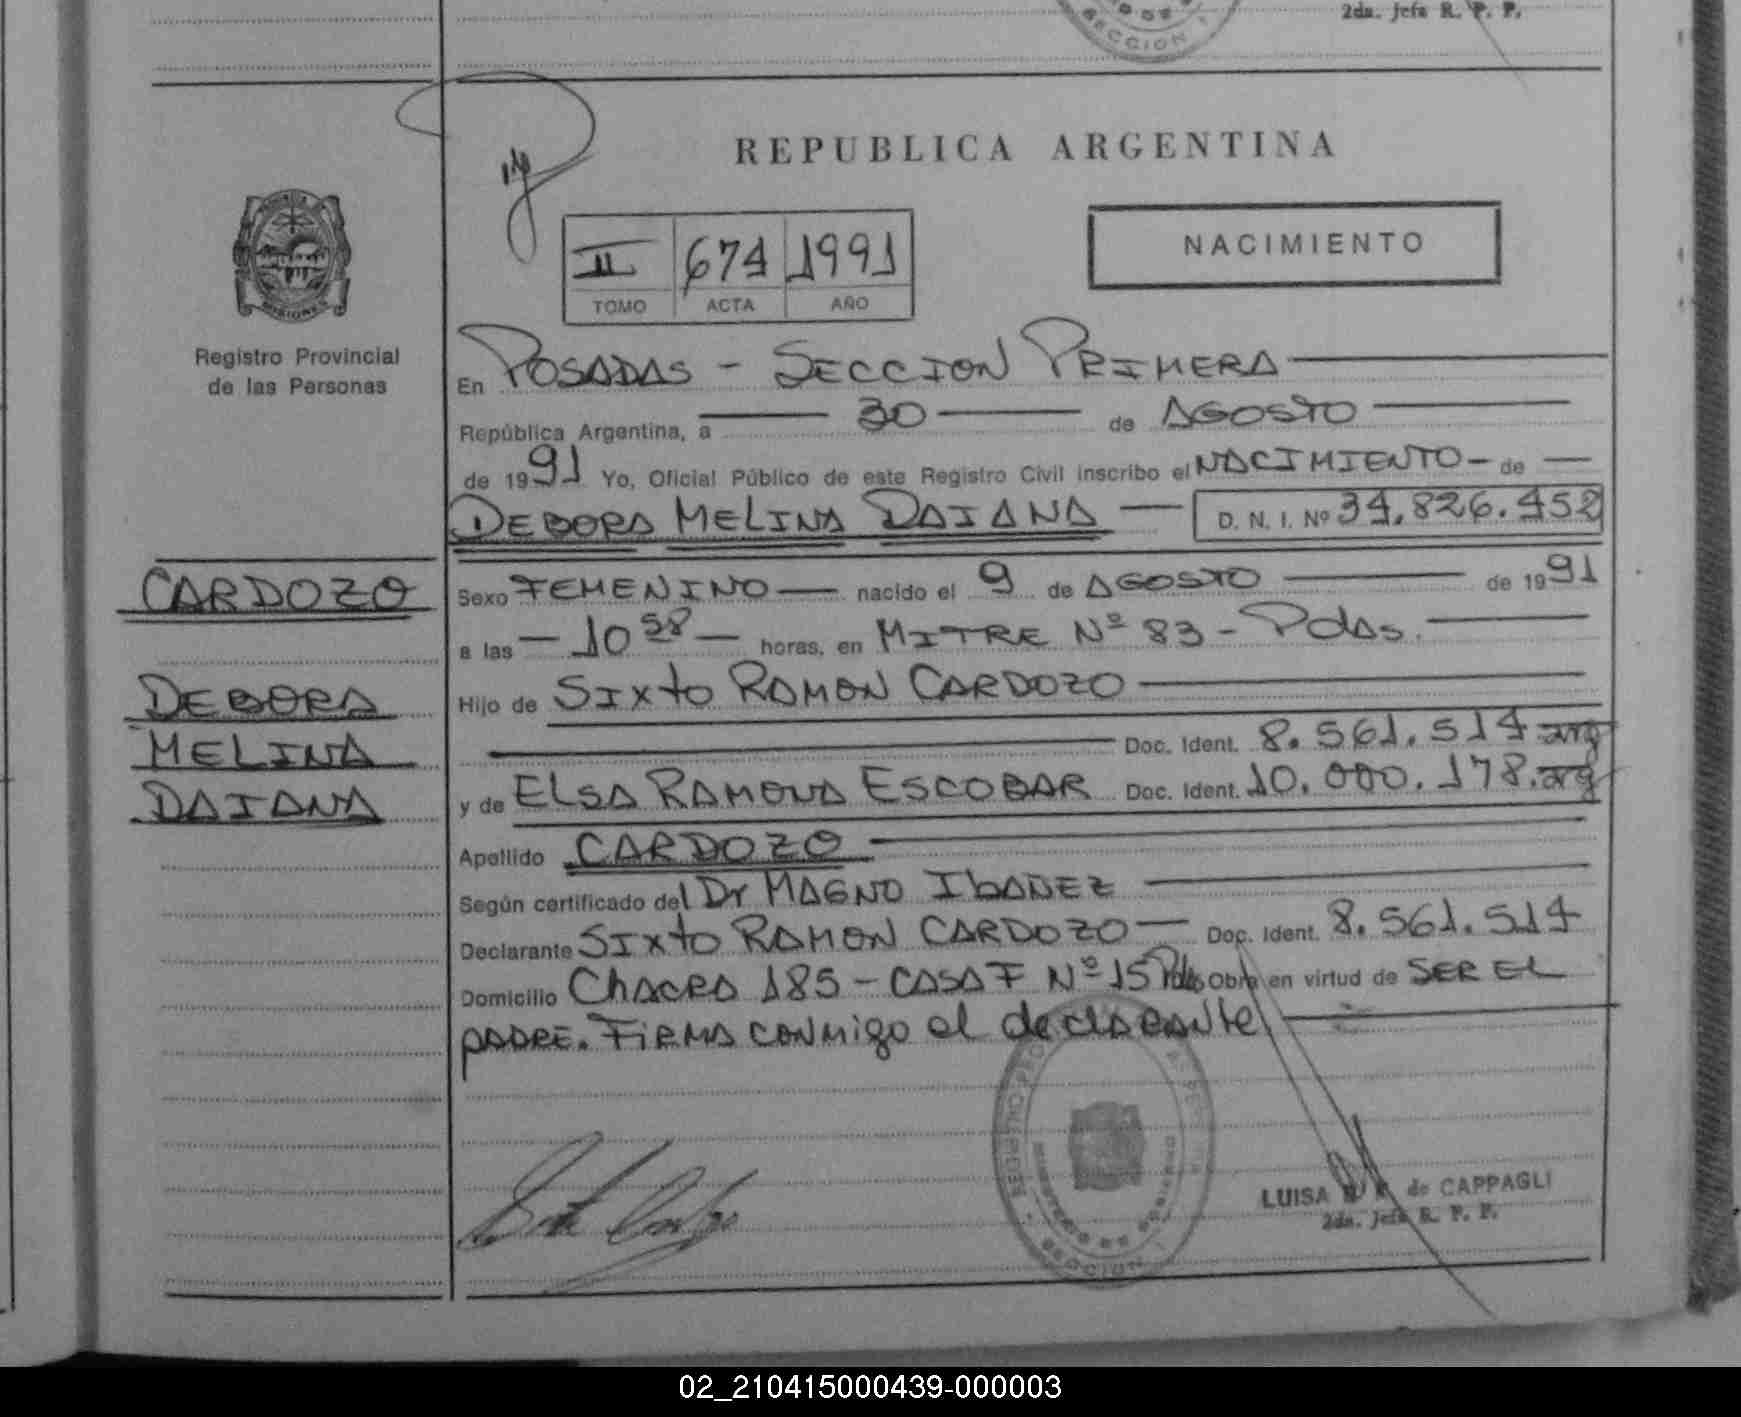 2da. Jefa R. P. P.
SECCION 1
REPUBLICA ARGENTINA
MISIONES
Registro Provincial
de las Personas
II 674 1991
TOMO ACTA AÑO
NACIMIENTO
En POSADAS - SECCION PRIMERA
República Argentina, a 30 de AGOSTO
de 1991 Yo, Oficial Público de este Registro Civil inscribo el NACIMIENTO - de
DEBORA MELINA DAIANA D. N. I. Nº 34.826.452
CARDOZO
DEBORA
MELINA
DAIANA
Sexo FEMENINO nacido el 9 de AGOSTO de 1991
a las - 10 58 - horas, en MITRE Nº 83 - Pdas.
Hijo de SIXTO RAMON CARDOZO
Doc. Ident. 8.561.514 arg
y de ELSA RAMONA ESCOBAR Doc. Ident. 10.000.178. arg
Apellido CARDOZO
Según certificado del Dr MAGNO IBAÑEZ
Declarante SIXTO RAMON CARDOZO Doc. Ident. 8.561.514
Domicilio Chacra 185 - CASA F Nº 15 Pdas Obra en virtud de SER EL
PADRE. FIRMA CONMIGO el declarante
SECCION 1
LUISA de CAPPAGLI
2da. Jefa R. P. P.
02_210415000439-000003